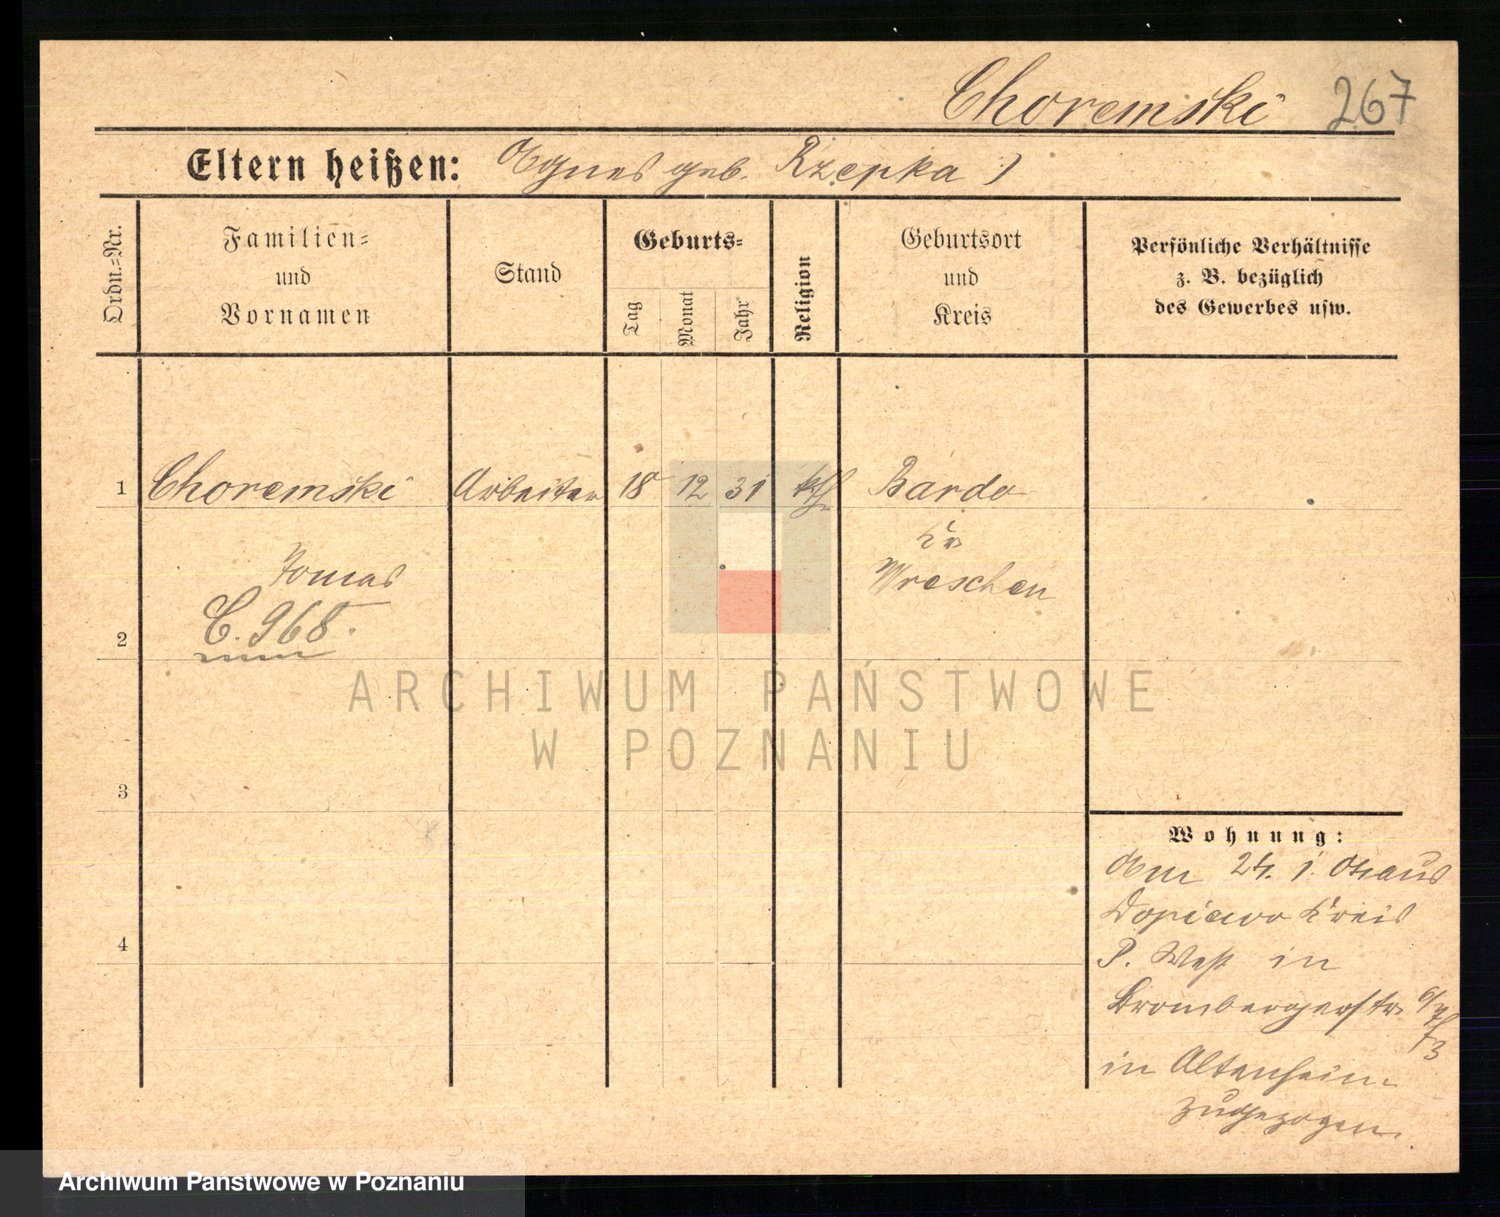 Choremski 267
Eltern heißen: Agnes geb. Rzepka )
Ordn.=Nr.
Familien=
und
Vornamen
Stand
Geburts=
Tag
Monat
Jahr
Religion
Geburtsort
und
Kreis
Persönliche Verhältnisse
z. B. bezüglich
des Gewerbes usw.
1 Choremski Arbeiter 18 12 31 kth Bardo
Kr
Wreschen
Tomas
C. 968.
2
3
4
Wohnung:
Am 24. 1. aus
Dopiewo Kreis
P. West in
Brombergerstr
in Altenheim
zugezogen.
ARCHIWUM PAŃSTWOWE
W POZNANIU
Archiwum Państwowe w Poznaniu